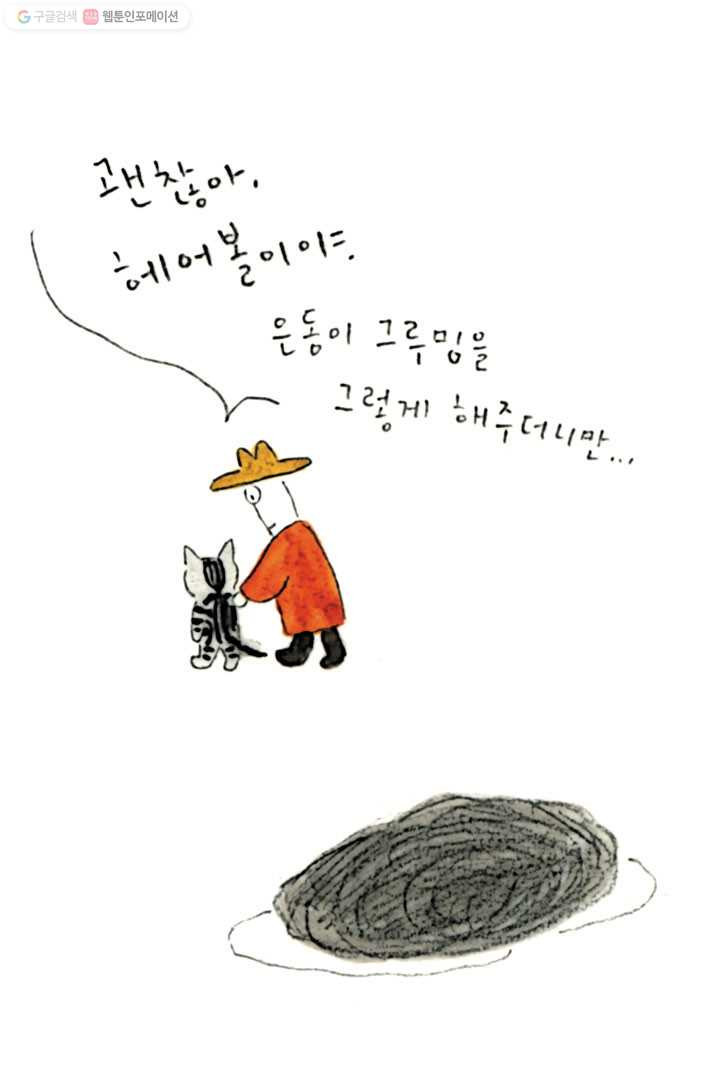 구글검색 웹툰인포메이션
괜찮아.
헤어볼이야.
은동이 그루밍을
그렇게 해주더니만...